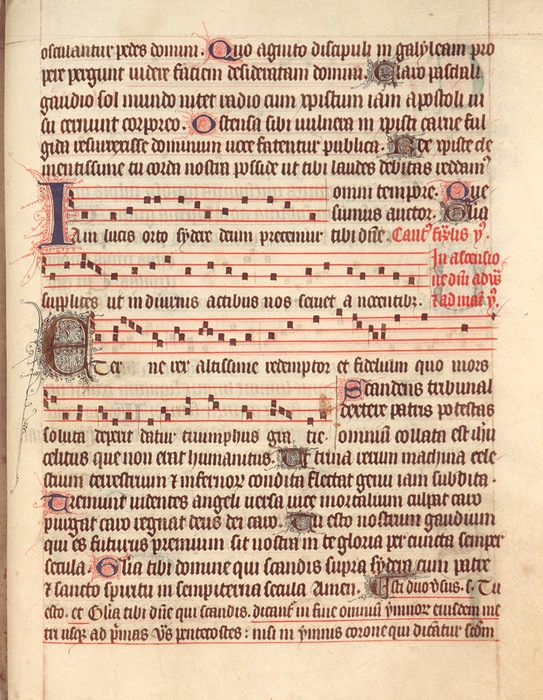 osculantur pedes domini. Quo agnito discipuli in galyleam pro
pere pergunt uidere faciem desideratam domini. Claro paschali
gaudio sol mundo nitet radio cum xpistum iam apostoli ui
su cernunt corporeo. Ostensa sibi uulnera in xpisti carne ful
gida resurrexisse dominum uoce fatentur publica. Rex xpiste cle
mentissime tu corda nostra posside ut tibi laudes debitas reddam⁹
omni tempore. Que
sumus auctor. Glia
Iam lucis orto sydere deum precemur tibi dn̄e.
supplices ut in diurnis actibus nos seruet a nocentibȝ.
In ascensio
Eterne rex altissime redemptor et fidelium quo mors
Scandens tribunal
dextere patris potestas
soluta deperit datur triumphus gratie. omniū collata est ih̄u
celitus que non erat humanitus. Ut trina rerum machina cele
stium terrestrium ⁊ infernorꝝ condita flectat genu iam subdita.
Tremunt uidentes angeli uersa uice mortalium culpat caro
purgat caro regnat deus dei caro. Tu esto nostrum gaudium
qui es futurus premium sit nostra in te gloria per cuncta semper
secula. Glia tibi domine qui scandis supra sydera cum patre
⁊ sancto spiritu in sempiterna secula Amen. Isti duo v̄sus. s. Tu
esto. et Glia tibi dn̄e qui scandis. dicant̄ in fine omniū ymnorꝝ eiusdem me
tri usqꝫ ad pͥmas v̄s pentecostes: nisi in ymnis corone qui dicūtur scdm̄